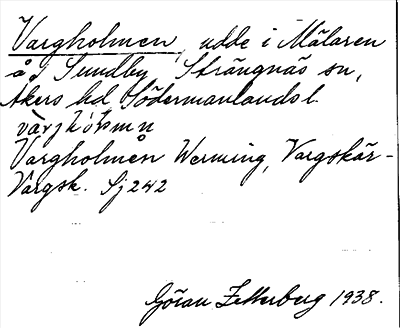 Vargholmen, udde i Mälaren
å Sundby, Strängnäs sn,
Åkers hd Södermanlands l.
Vargholmen Werming, Vargskär-
Vargsk. Sj 242
Göran Zetterberg 1938.